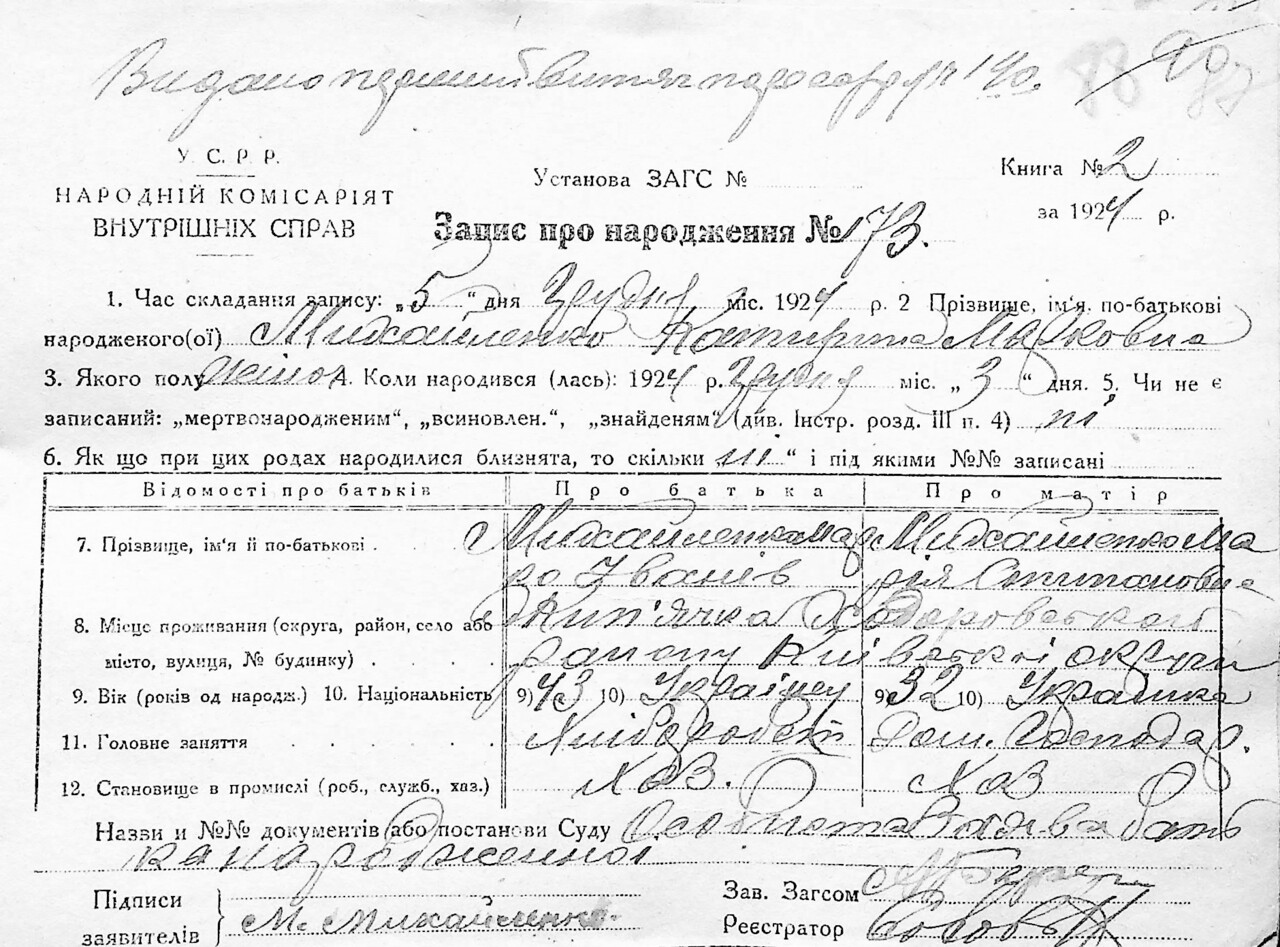 Видано перший витяг
88 90 87
У. С. Р. Р.
НАРОДНІЙ КОМІСАРІЯТ
ВНУТРІШНІХ СПРАВ
Установа ЗАГС №
Книга № 2
за 1924 р.
Запис про народження № 173.
1. Час складання запису: „5“ дня Грудня міс. 1924 р. 2 Прізвище, ім'я, по-батькові
народженого(ої) Михайленко Катирина Марковна
3. Якого полу жіноч 4. Коли народився (лась): 1924 р. Грудня міс. „3“ дня. 5. Чи не є
записаний: „мертвонародженим“, „всиновлен.“, „знайденям“ (див. Інстр. розд. III п. 4) ні
6. Як що при цих родах народилися близнята, то скільки ні “ і під якими №№ записані
Відомості про батьків Про батька Про матір
7. Прізвище, ім'я й по-батькові Михайленко Мар Михайленко Ма
ко Іванів рія Степановна
8. Місце проживання (округа, район, село або Жип'ячка Ходоровської
місто, вулиця, № будинку) району Київської округи
9. Вік (років од народж.) 10. Національність 9) 43 10) Українец 9) 32 10) Українка
11. Головне заняття Хлібороб Дом. Господар.
12. Становище в промислі (роб., служб., хаз.) Хаз. Хаз
Назви и №№ документів (або постанови Суду Особиста Заява бать
ка народженної
Підписи
заявителів М. Михайленко
Зав. Загсом
Реєстратор